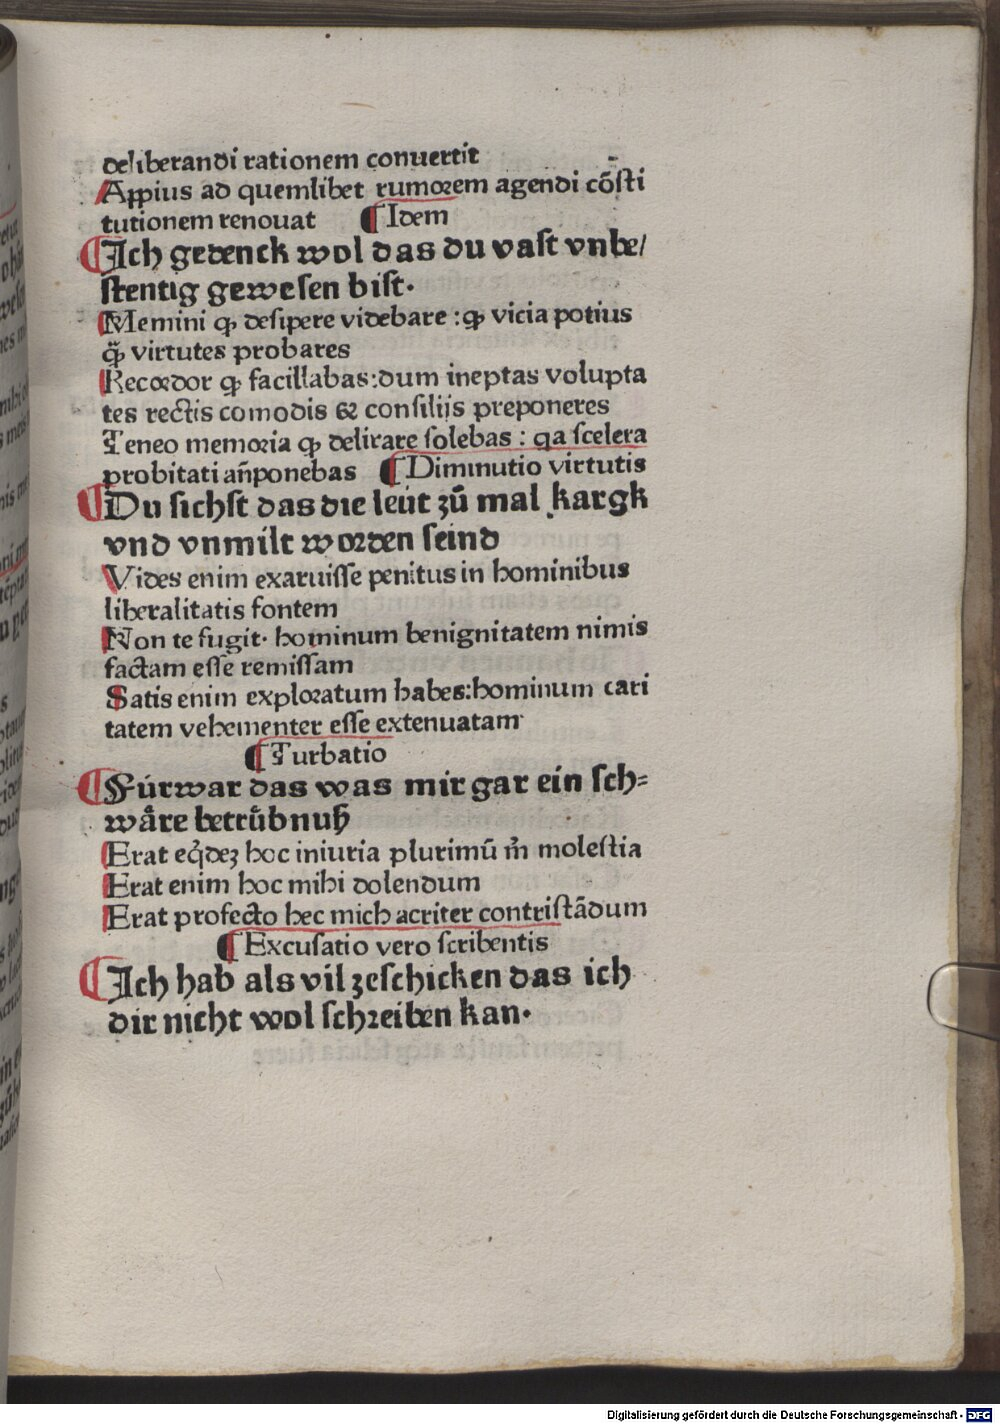 deliberandi rationem conuertit
Appius ad quemlibet rumorem agendi cõsti
tutionem renouat ¶ Idem
¶ Ich gedenck wol das du vast vnbe/
stentig gewesen bist.
Memini ꝙ desipere videbare : ꝙ vicia potius
q̃ꝫ virtutes probares
Recordor ꝙ facillabas: dum ineptas volupta
tes rectis comodis & consilijs preponeres
Teneo memoria ꝙ delirare solebas : qa scelera
probitati añponebas ¶ Diminutio virtutis
¶ Du sichst das die leut zů mal kargk
vnd vnmilt worden seind
Vides enim exaruisse penitus in hominibus
liberalitatis fontem
Non te fugit. hominum benignitatem nimis
factam esse remissam
Satis enim exploratum habes: hominum cari
tatem vehementer esse extenuatam
¶ Turbatio
¶ Fúrwar das was mir gar ein sch-
wåre betrůbnuß
Erat eq̇deꝫ hoc iniuria plurimũ m̃ molestia
Erat enim hoc mihi dolendum
Erat profecto hec mich acriter contristãdum
¶ Excusatio vero scribentis
¶ Ich hab als vil zeschicken das ich
dir nicht wol schreiben kan.
Digitalisierung gefördert durch die Deutsche Forschungsgemeinschaft - DFG